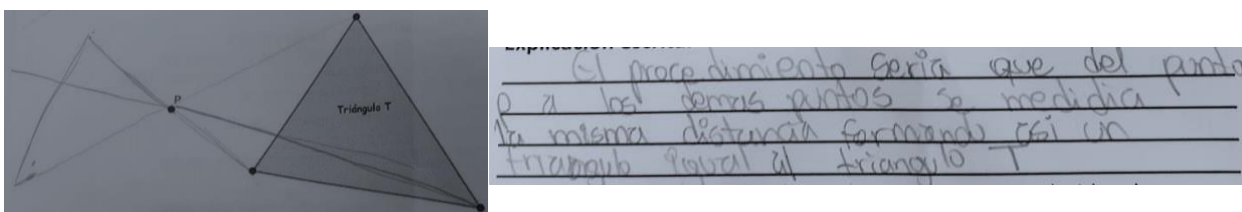 P
Triángulo T
El procedimiento seria que del punto
P a los demas puntos se medidia
la misma distancia formando asi un
triangulo igual al triangulo T